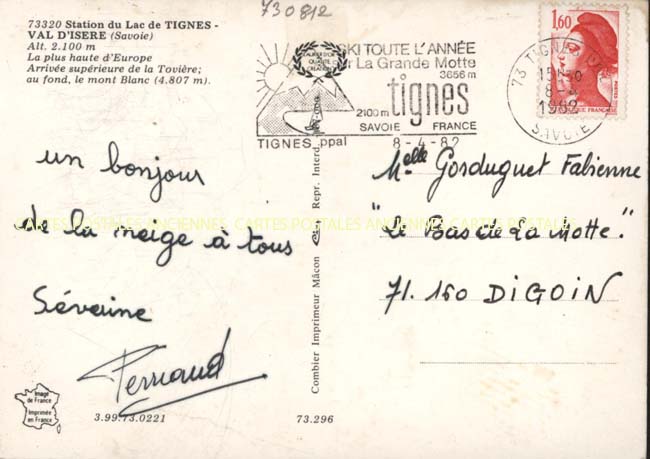 730812
73320 Station du Lac de TIGNES -
VAL D'ISERE (Savoie)
Alt. 2.100 m
La plus haute d'Europe
Arrivée supérieure de la Tovière;
au fond, le mont Blanc (4.807 m).
SKI TOUTE L'ANNÉE
La Grande Motte
3656 m
2100 m tignes
SAVOIE FRANCE
TIGNES ppal 8-4-82
1,60
73 TIGNES
15H30
8-4
1982
SAVOIE
un bonjour
de la neige à tous
Séverine
Pernaud
Melle Gorduguet Fabienne
"Le Bas de La Motte"
71.160 DIGOIN
CARTES POSTALES ANCIENNES CARTES POSTALES ANCIENNES CARTES POSTALES
Combier Imprimeur Mâcon Repr. Interd.
Image
de France
Imprimée
en France
3.99.73.0221
73.296